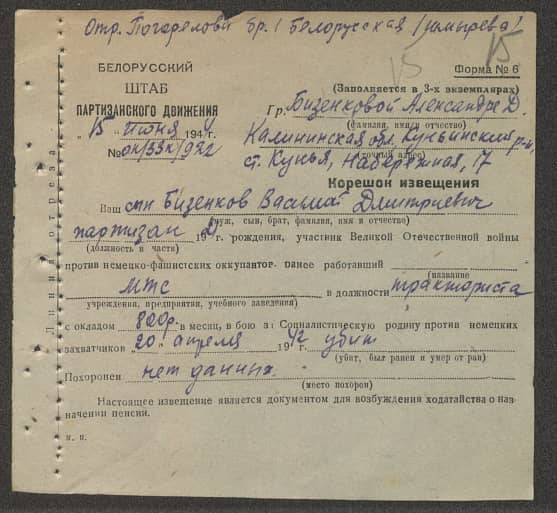 Отр. Погорелова бр. 1 Белорусская (Шмырева)
15
БЕЛОРУССКИЙ
ШТАБ
ПАРТИЗАНСКОГО ДВИЖЕНИЯ
"15" июня 1944
№ 0к/33к/922
Форма № 6
(Заполняется в 3-х экземплярах)
Гр. Бизенковой Александре Д.
(фамилия, имя и отчество)
Калининская обл. Куньинский р-н,
ст. Кунья, Набережная, 17
(точный адрес)
Корешок извещения
Ваш сын Бизенков Василий Дмитриевич
(муж, сын, брат, фамилия, имя и отчество)
партизан 19 г. рождения, участник Великой Отечественной войны
(должность в части)
против немецко-фашистских оккупантов ранее работавший
(название
МТС в должности тракториста
учреждения, предприятия, учебного заведения)
с окладом 800р. в месяц, в бою за Социалистическую родину против немецких
захватчиков "20" апреля 1942 убит
(убит, был ранен и умер от ран)
Похоронен нет данных.
(место похорон)
Настоящее извещение является документом для возбуждения ходатайства о наз-
начении пенсии.
м. п.
Линия отреза